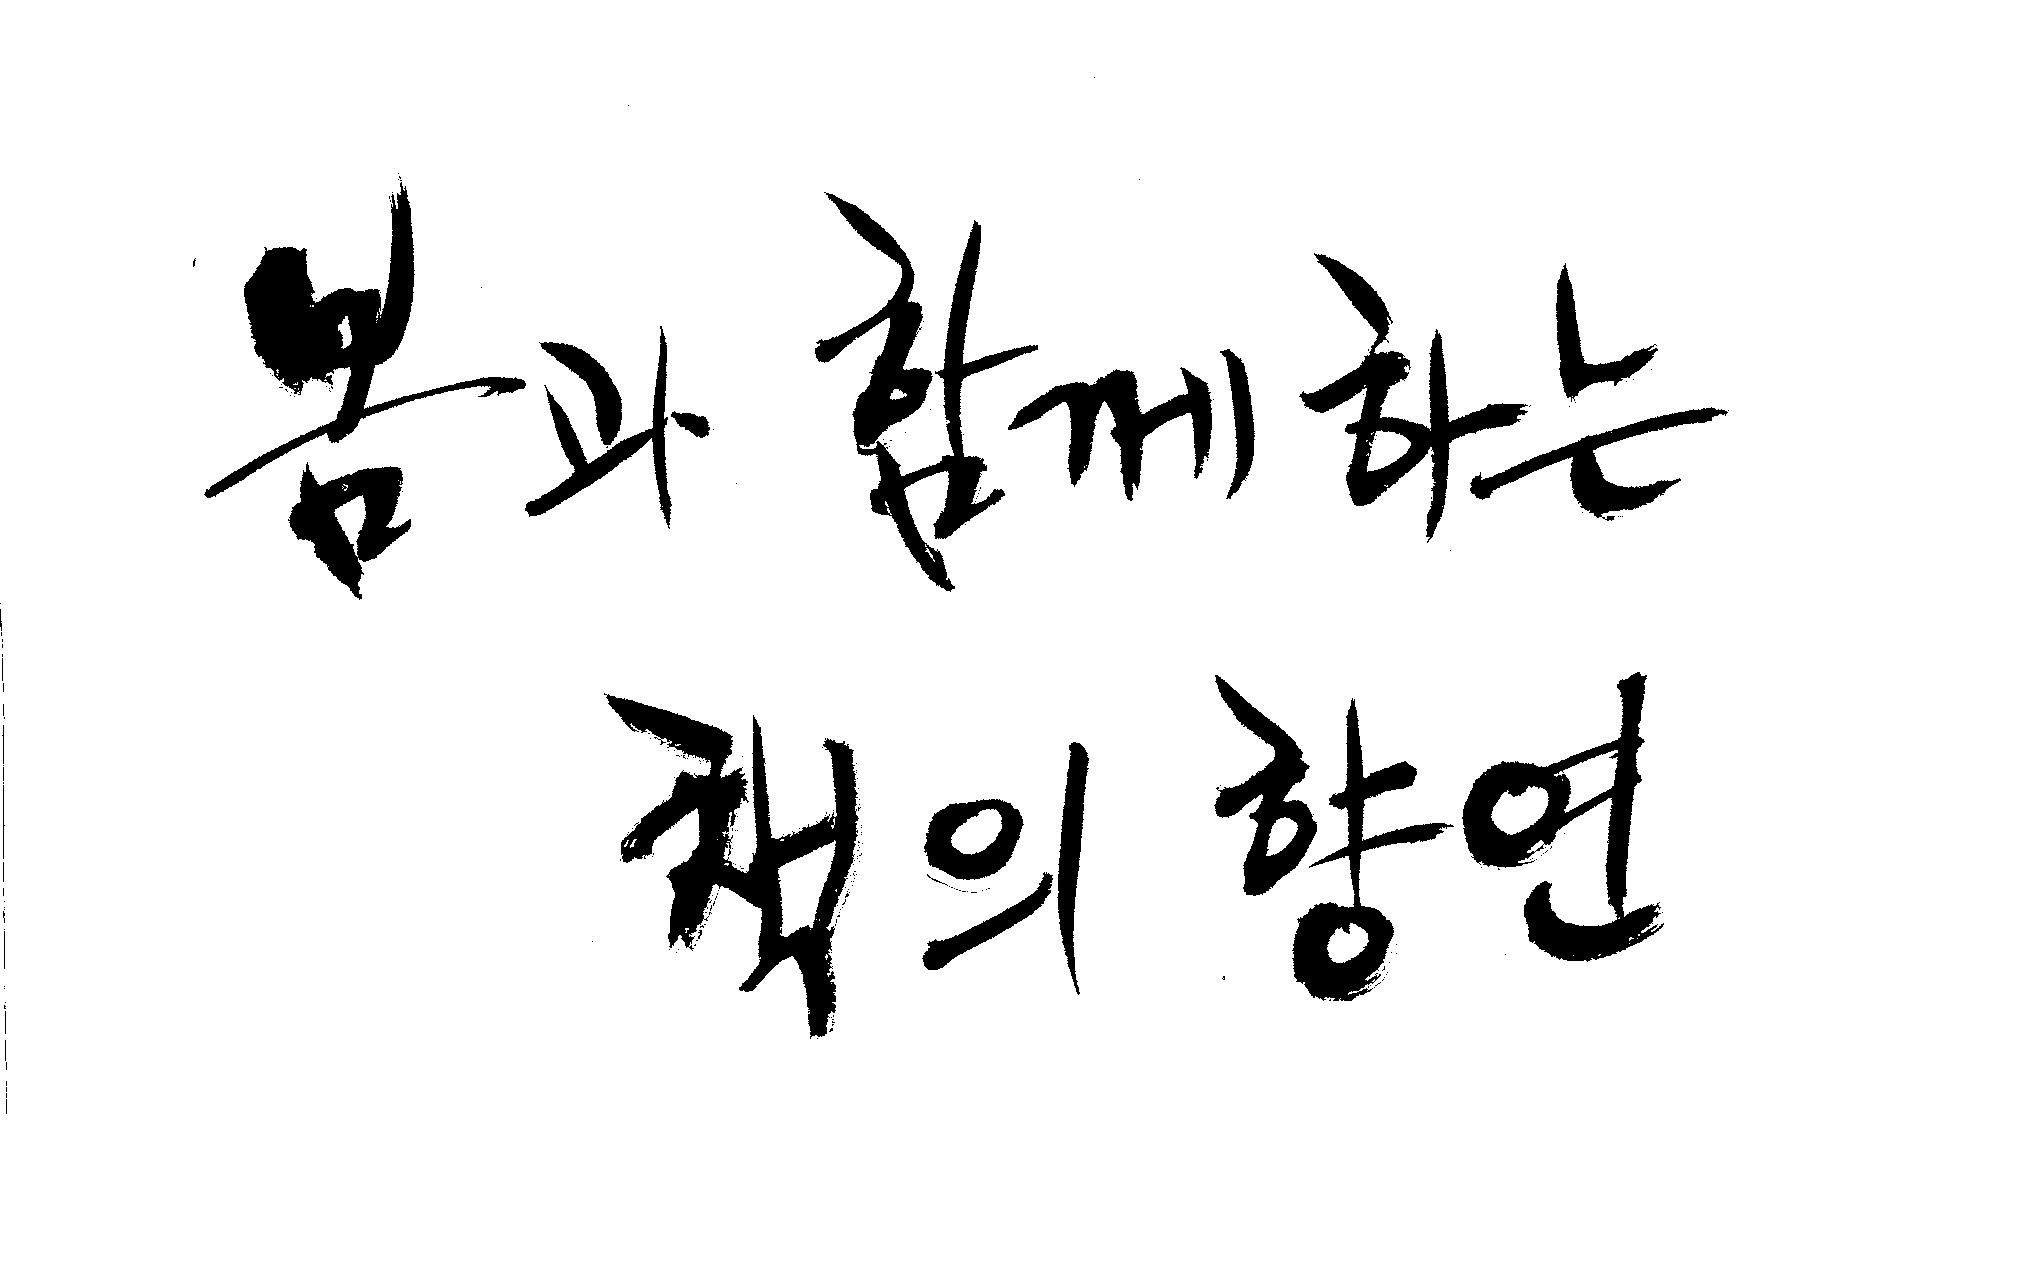 봄과 함께하는
책의 향연